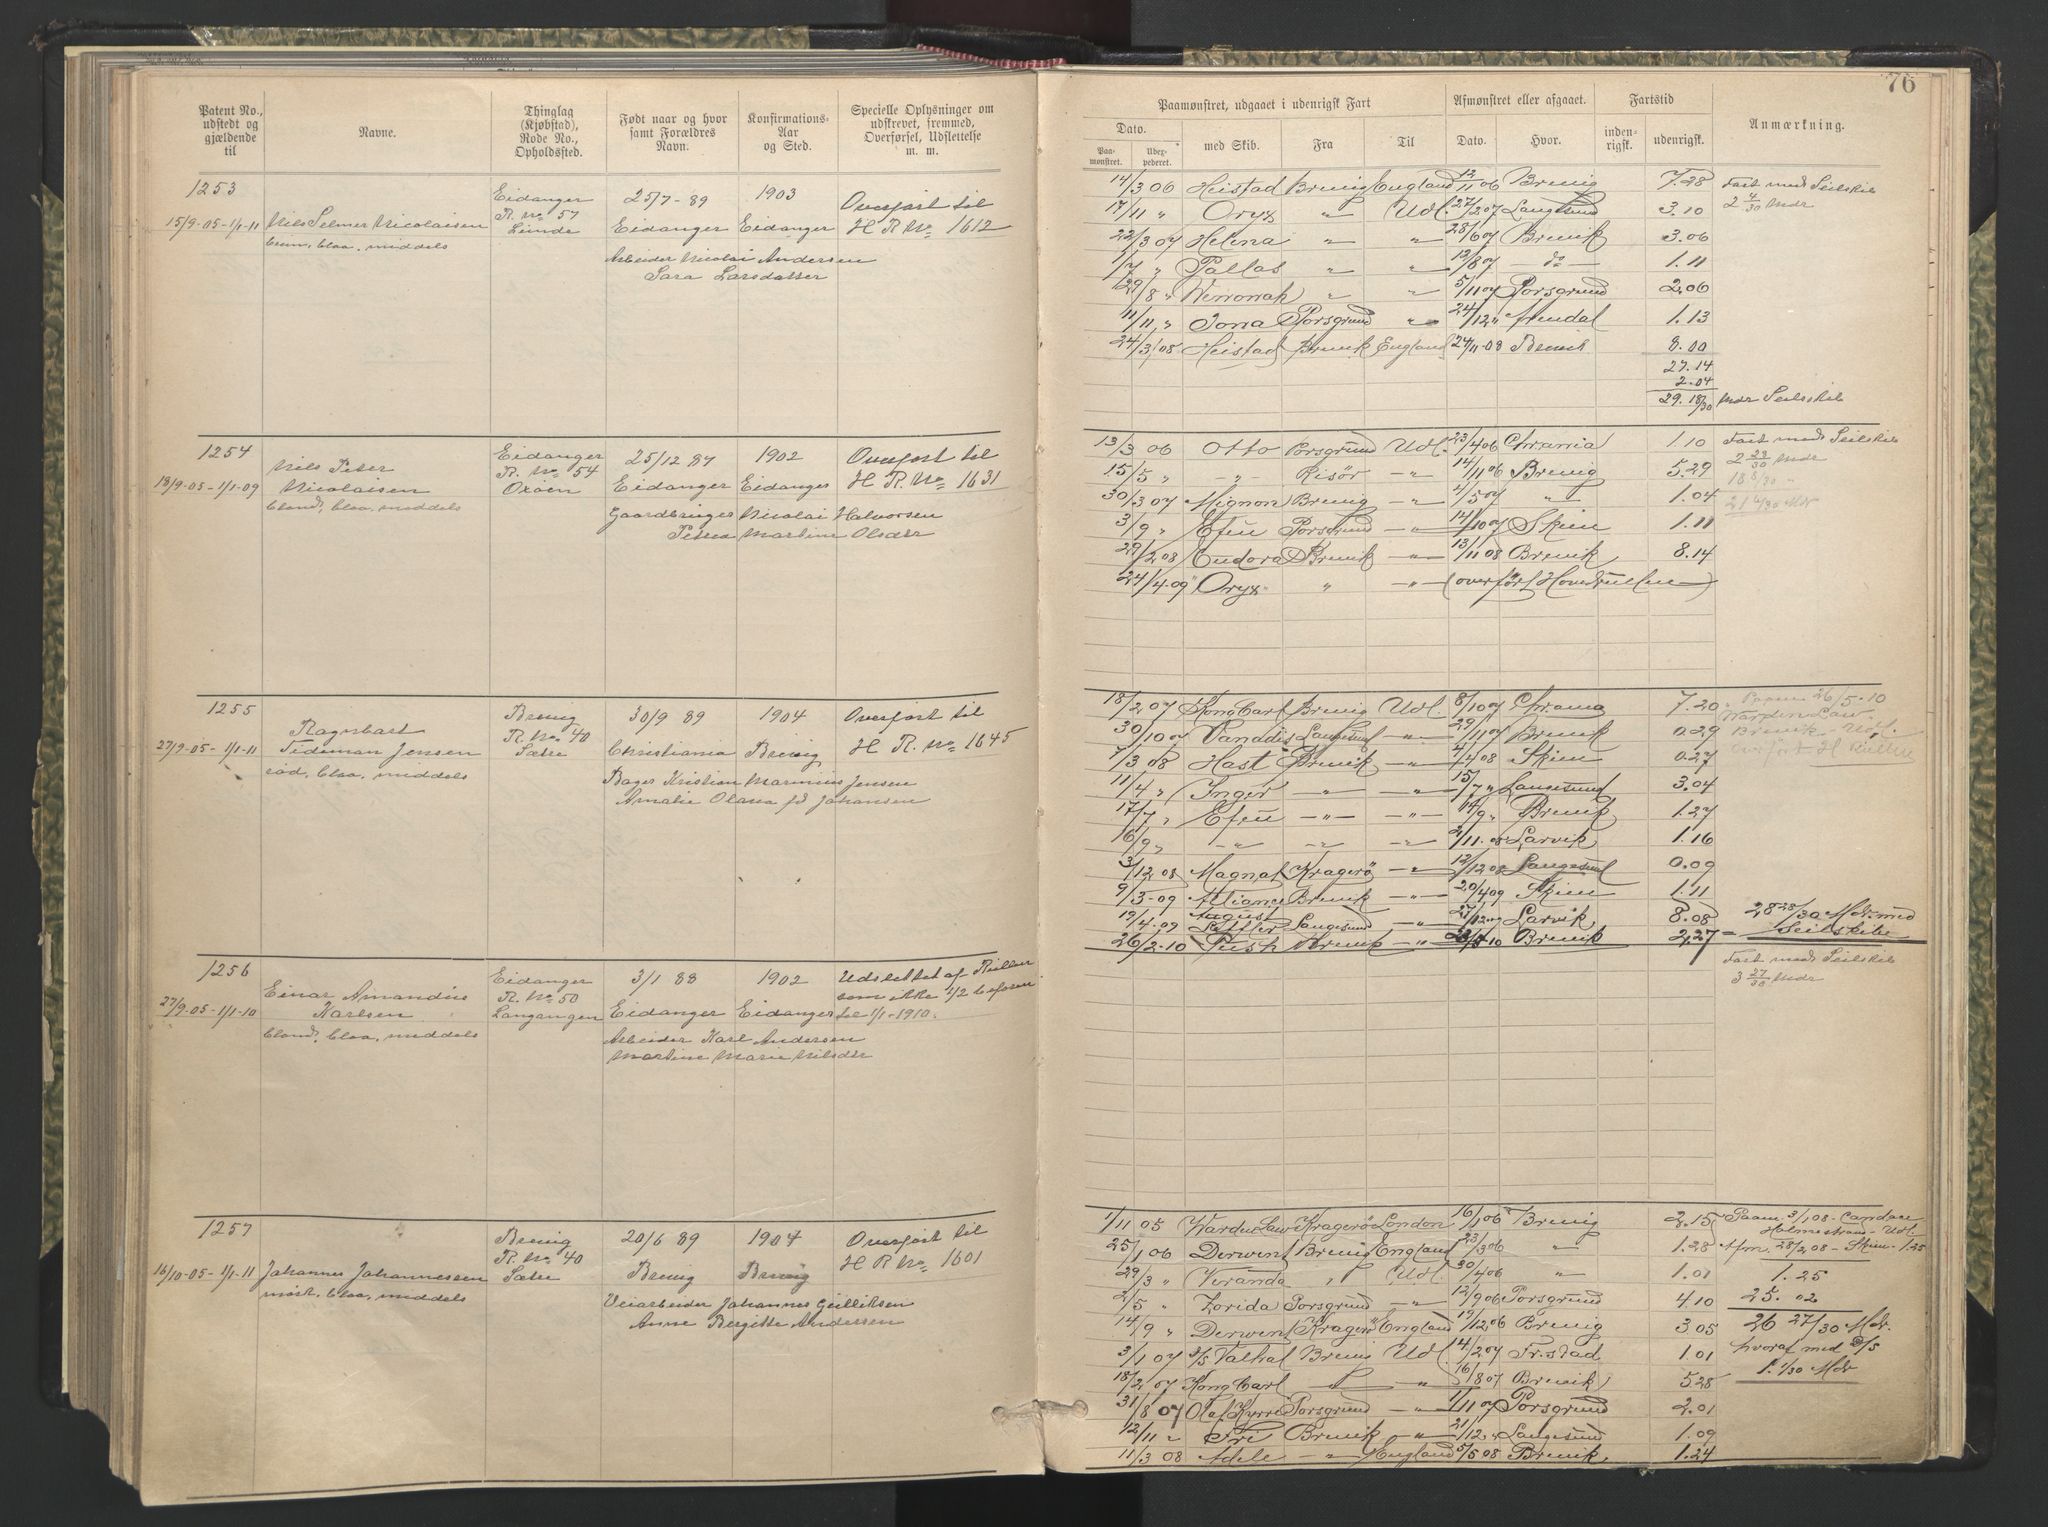 76
Patent No., udstedt og gjældende til
Navne.
Thinglag (Kjøbstad), Rode No., Opholdssted.
Født naar og hvor samt Forældres Navn.
Konfirmations-Aar og Sted.
Specielle Oplysninger om udskrevet, frømmed, Overførsel, Udslettelse m. m.
Paamønstret, udgaaet i udenrigsk Fart
Afmønstret eller afgaaet.
Fartstid
Anmærkning.
Dato.
Paa-mønstret.
Udex-pederet.
med Skib.
Fra
Til
Dato.
Hvor.
inden-rigsk.
udenrigsk.
1253
15/9-05-1/1-11
Nils Selmer Nicolaisen
Eidanger
R. No 57
Lunde
25/7-89
Eidanger
1903
Eidanger
Overført til
H R. No 1612
Arbeider Nicolai Andersen
Sara Larsdatter
14/3 06 Heistad Brevig England 12/11 06 Brevig 7.28
Fart med Seilskib
2 4/30 Mdr
17/11 " Oryx " Udl. 27/2 07 Langesund 3.10
22/3 07 Helena " " 28/6 07 Brevik 3.06
1/7 " Pallas " " 12/8 07 do 1.11
29/8 " Wenonah " " 5/11 07 Porsgrund 2.06
11/11 " Iona Porsgrund " 24/12 " Arendal 1.13
24/3 08 Heistad Brevik England 24/11-08 Brevik 8.00
27.14
2.04
29.18/30 Mdr Seilskib
1254
18/9-05-1/1-09
Nils Peter
Nicolaisen
blond, blaa, middels
Eidanger
R. No 54
Oxøen
25/12 87
Eidanger
1902
Eidanger
Overført til
H R. No 1631
Gaardbruger Nicolai Halvorsen
Petrea Martine Olsdtr
13/3 06 Otto Porsgrund Udl. 23/4 06 Chrania 1.10
Fart med Seilskib
2 23/30 Mdr
15/5 " -"- Risør -"- 14/11 06 Brevig 5.29
18 8/30 "
30/3 07 Mignon Brevig -"- 4/5 07 -"- 1.04
21 6/30 Mdr
3/9 " Efeu Porsgrund -"- 14/10 07 Skien 1.11
29/2 08 Eudora Brevik -"- 13/11 08 Brevik 8.14
24/4-09 Oryx " -"- (overført Hovedrullen)
1255
27/9-05-1/1-11
Ragnbart
Tideman Jensen
rød, blaa, middels
Brevig
R. No 40
Sætre
30/9 89
Christiania
1904
Brevig
Overført til
H R. No 1645
Bager Kristian Marinius Jensen
Amalie Olava fd Johansen
18/2 07 Kong Carl Brevig Udl. 8/10 07 Chrania 7.20
Paam 26/5-10
Warden Law
30/10 07 Vanadis Langesund -"- 29/11 07 Brevik 0.29
Brevik - Udl.
7/3 08 Hast Brevik -"- 4/4 08 Skien 0.27
Overført H Rullen
11/4 " Inger -"- -"- 15/7 " Langesund 3.04
17/7 " Efeu -"- -"- 14/9 " Brevik 1.27
16/9 " -"- -"- -"- 2/11-08 Larvik 1.16
3/12 08 Magnat Kragerø -"- 12/12 08 Langesund 0.09
9/3-09 Alliance Brevik -"- 20/4 09 Skien 1.11
19/4-09 August Leffler Langesund -"- 27/12 09 Larvik 8.08
28 28/30 Mdr. med
Seilskibe
26/2-10 Push Brevik -"- 23/5-10 Brevik 2.27
1256
27/9-05-1/1-10
Einar Amandus
Karlsen
blond, blaa, middels
Eidanger
R. No 50
Langangen
3/1 88
Eidanger
1902
Eidanger
Udslettet af Rullen
som ikke 1/2 befaren
til 1/1-1910.
Arbeider Karl Andersen
Martine Marie Nilsdtr
Fart med Seilskib
3 27/30 Mdr
1257
16/10-05-1/1-11
Johannes Johannessen
mørk, blaa, middels
Brevig
R. No 40
Sætre
20/6 89
Brevig
1904
Brevig
Overført til
H R No 1601
Veiarbeider Johannes Gulliksen
Anne Bergitte Andersen
1/11 05 Warden Law Kragerø London 16/1 06 Brevig 2.15
Paam. 3/1 08 - Candace
Holmestrand Udl.
25/1 06 Derwent Brevig England 23/3 06 " 1.28
Afm. 28/2 08 - Skien - 1.25
29/3 " Veranda " Udl. 30/4 06 " 1.01
1.25
2/5 " Zorida Porsgrund -"- 12/9 06 Porsgrund 4.10
25. 02
14/9 " Derwent Kragerø England 19/12 06 Brevig 3.05
26 27/30 Mdr.
3/1 07 S/S Valhal Brevig Udl. 14/2 07 Fr.stad 1.01
hvoraf med D/S
1. 1/30 Mdr
18/2 07 Kong Carl " " 16/8 07 Brevik 5.28
31/8 07 Olaf Kyrre Porsgrund -"- 1/11 07 Porsgrund 2.01
12/11 " Fri Brevik -"- 21/12 " Langesund 1.09
11/3 08 Adele -"- England 5/5 08 Brevik 1.24